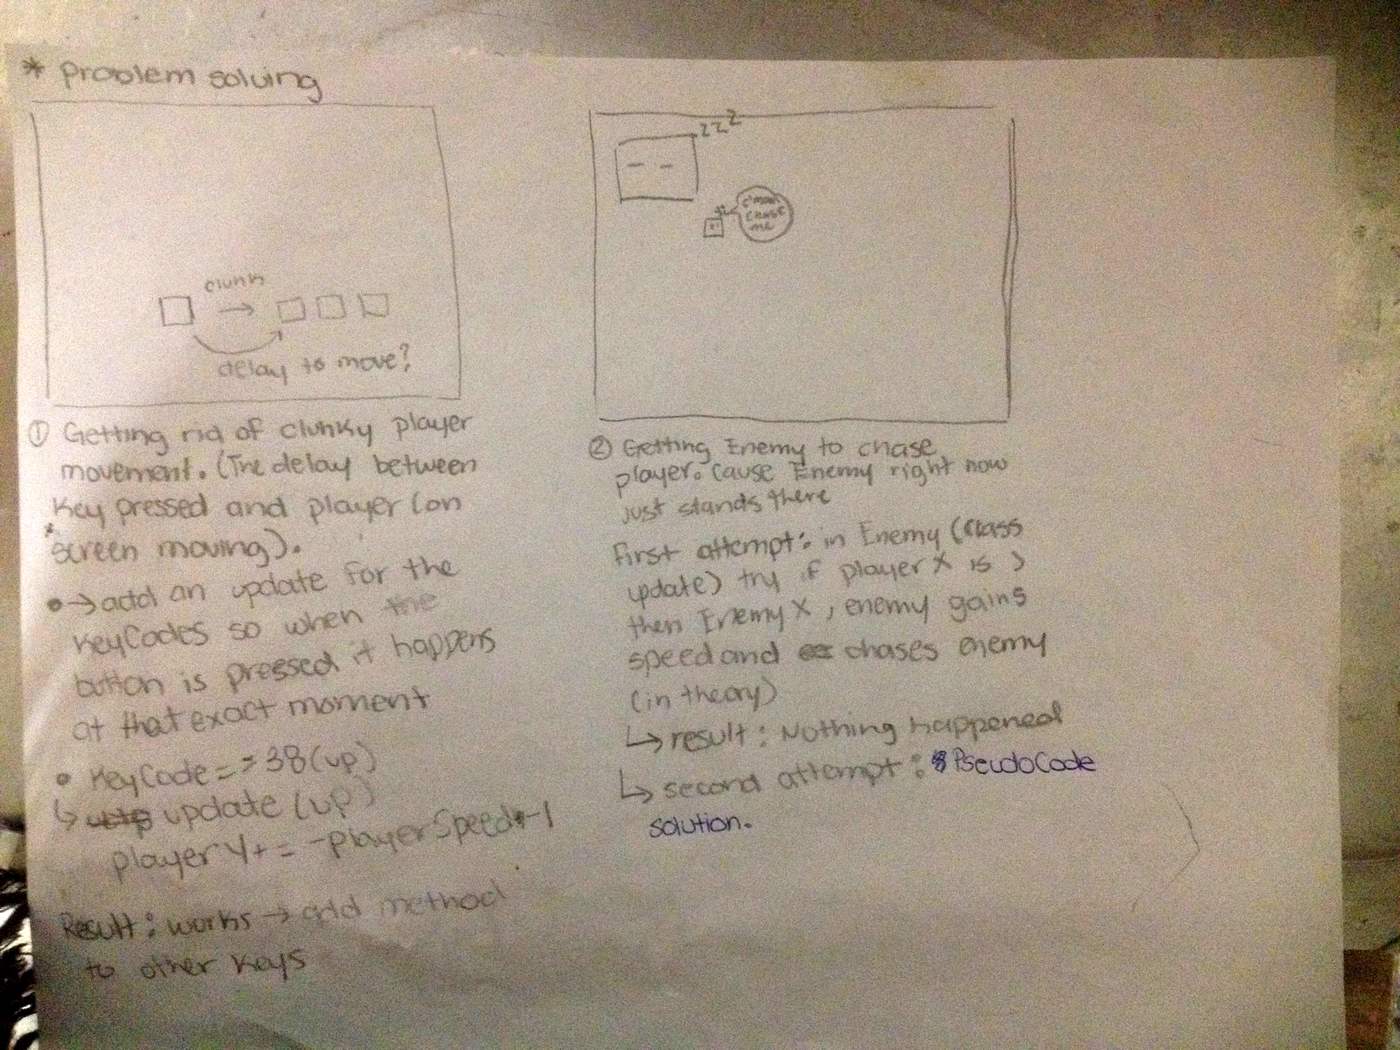 * Problem solving
clunk
delay to move?
① Getting rid of clunky player
movement. (The delay between
Key pressed and player (on
screen moving).
• → add an update for the
KeyCodes so when the
button is pressed it happens
at that exact moment
• KeyCode == 38 (up)
↳ update (up)
playerY += -playerSpeed * -1
Result: works → add method
to other keys
zzz
c'mon
chase
me
② Getting Enemy to chase
player. Cause Enemy right now
just stands there
First attempt: in Enemy (class
update) try if playerX is >
then EnemyX, enemy gains
speed and chases enemy
(in theory)
↳ result: Nothing happened
↳ second attempt: PseudoCode
solution.